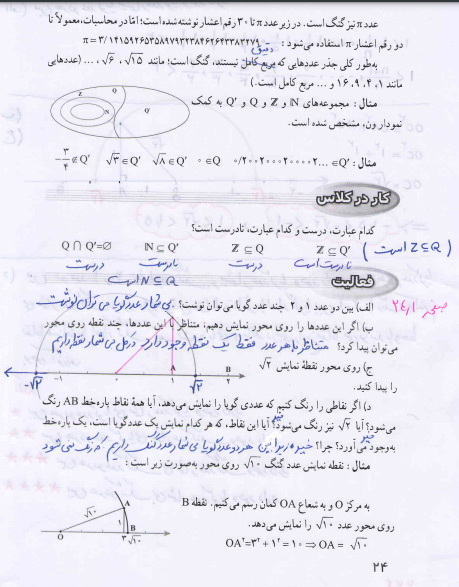 عدد π نیز گنگ است. در زیر عدد π تا ۳۰ رقم اعشار نوشته شده است؛ اما در محاسبات، معمولاً تا
دو رقم اعشار π استفاده می‌شود :
π = ۳/۱۴۱۵۹۲۶۵۳۵۸۹۷۹۳۲۳۸۴۶۲۶۴۳۳۸۳۲۷۹
دقیقی
به‌طور کلی جذر عددهایی که مربع کامل نیستند، گنگ است؛ مانند √۱۵ ، √۶ ، ... (عددهایی
مانند ۱، ۴، ۹، ۱۶ و ... مربع کامل است.)
مثال : مجموعه‌های ℕ و ℤ و Q و Q′ به کمک
نمودار ون، مشخص شده است.
Z Q Q′ N
مثال : ۰/۲۰۰۲۰۰۰۲۰۰۰۰۲... ∈Q′ ۰∈Q √۸∈Q′ √۳∈Q′ −۳/۴∉Q′
کار در کلاس
کدام عبارت، درست و کدام عبارت، نادرست است؟
Z ⊆ Q′ Z ⊆ Q ℕ ⊆ Q′ Q ∩ Q′=∅
(Z⊆Q است)
نادرست است درست نادرست درست
N⊆Q است
فعالیت
صفحه ۲۴/۱
الف) بین دو عدد ۱ و ۲ چند عدد گویا می‌توان نوشت؟ بی شمار عدد گویا می توان نوشت
ب) اگر این عددها را روی محور نمایش دهیم؛ متناظر با این عددها، چند نقطه روی محور
می‌توان پیدا کرد؟ متناظر با هر عدد فقط یک نقطه وجود دارد در کل بی شمار نقطه داریم
ج) روی محور نقطهٔ نمایش √۲
را پیدا کنید.
−√۲ −۱ ۰ A ۱ √۲ B ۲
د) اگر نقاطی را رنگ کنیم که عددی گویا را نمایش می‌دهد، آیا همهٔ نقاط پاره‌خط AB رنگ
می‌شود؟ آیا √۲ نیز رنگ می‌شود؟ آیا این نقاط، که هر کدام نمایش یک عدد گویا است، یک پاره‌خط
خیر خیر
به‌وجود می‌آورد؟ چرا؟ خیر زیرا بین هر دو عدد گویا بی شمار عدد گنگ داریم که رنگ نمی شود
مثال : نقطه نمایش عدد گنگ √۱۰ روی محور به‌صورت زیر است :
به مرکز O و به شعاع OA کمان رسم می‌کنیم. نقطه B
روی محور عدد √۱۰ را نمایش می‌دهد.
OA²=۳²+۱²=۱۰ ⇒ OA = √۱۰
√۱۰ A ۱ B O ۳ √۱۰
۲۴